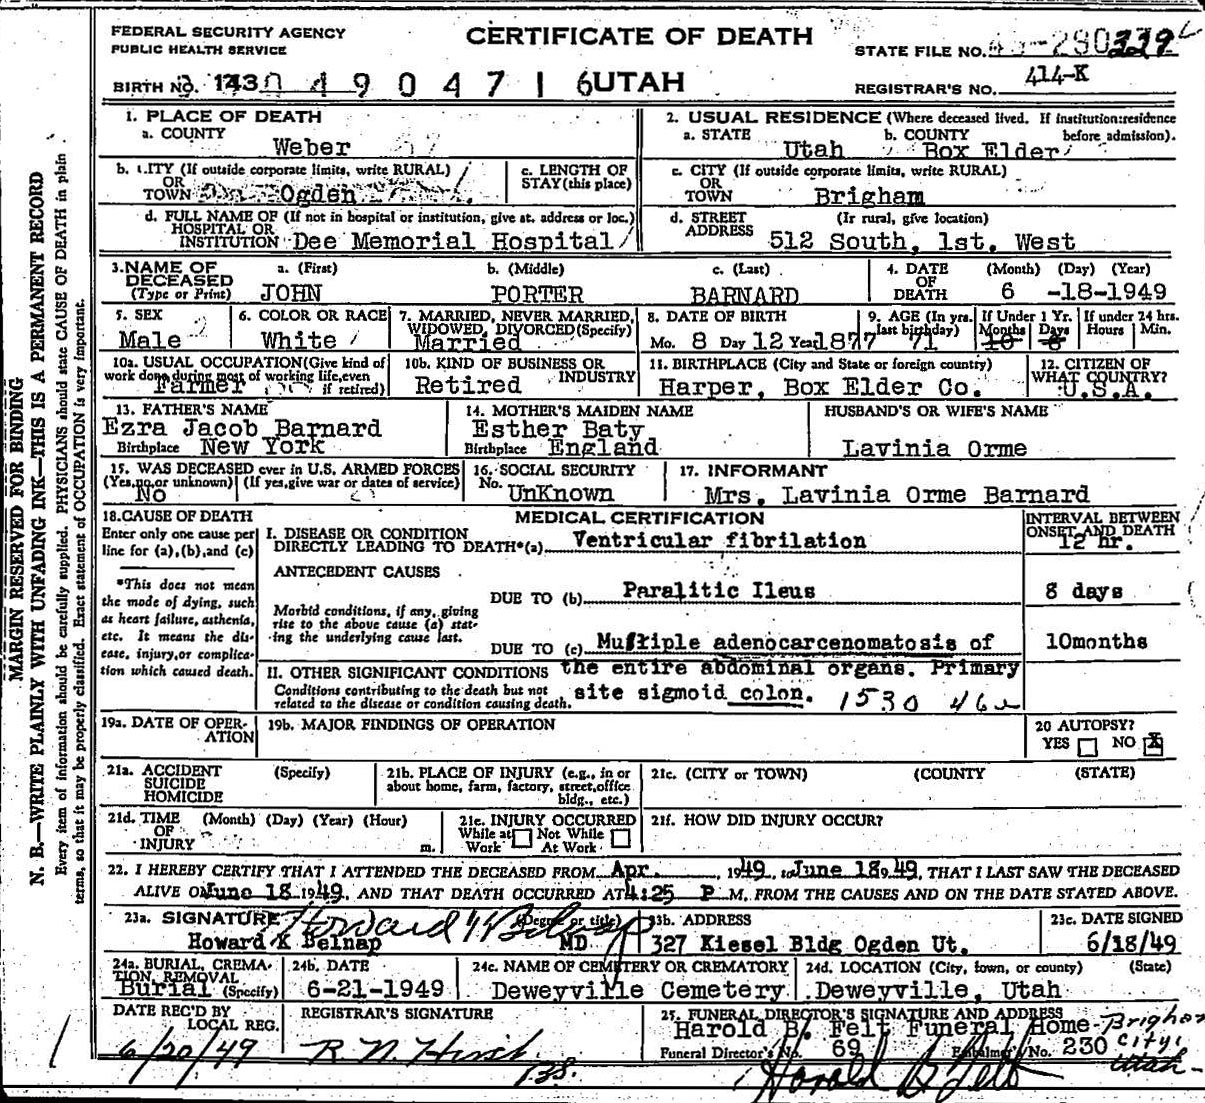 FEDERAL SECURITY AGENCY
PUBLIC HEALTH SERVICE
CERTIFICATE OF DEATH
STATE FILE NO. 339
BIRTH NO. 143 0 4 9 0 4 7 1 6 UTAH
REGISTRAR'S NO. 414-K
1. PLACE OF DEATH
a. COUNTY Weber
2. USUAL RESIDENCE (Where deceased lived. If institution:residence before admission).
a. STATE Utah b. COUNTY Box Elder
b. CITY (If outside corporate limits, write RURAL)
OR
TOWN Ogden
c. LENGTH OF
STAY (this place)
c. CITY (If outside corporate limits, write RURAL)
OR
TOWN Brigham
d. FULL NAME OF (If not in hospital or institution, give st. address or loc.)
HOSPITAL OR
INSTITUTION Dee Memorial Hospital
d. STREET (If rural, give location)
ADDRESS 512 South, 1st. West
3. NAME OF DECEASED (Type or Print)
a. (First) JOHN
b. (Middle) PORTER
c. (Last) BARNARD
4. DATE OF DEATH (Month) (Day) (Year)
6 -18-1949
5. SEX
Male
6. COLOR OR RACE
White
7. MARRIED, NEVER MARRIED,
WIDOWED, DIVORCED (Specify)
Married
8. DATE OF BIRTH
Mo. 8 Day 12 Year 1877
9. AGE (In yrs. last birthday)
71
If Under 1 Yr.
Months 10 Days 6
If under 24 hrs.
Hours Min.
10a. USUAL OCCUPATION (Give kind of
work done during most of working life, even
if retired)
Farmer
10b. KIND OF BUSINESS OR
INDUSTRY
Retired
11. BIRTHPLACE (City and State or foreign country)
Harper, Box Elder Co.
12. CITIZEN OF
WHAT COUNTRY?
U.S.A.
13. FATHER'S NAME
Ezra Jacob Barnard
Birthplace New York
14. MOTHER'S MAIDEN NAME
Esther Baty
Birthplace England
HUSBAND'S OR WIFE'S NAME
Lavinia Orme
15. WAS DECEASED ever in U.S. ARMED FORCES
(Yes, no, or unknown) (If yes, give war or dates of service)
No
16. SOCIAL SECURITY
No. UnKnown
17. INFORMANT
Mrs. Lavinia Orme Barnard
18. CAUSE OF DEATH
Enter only one cause per
line for (a), (b), and (c)
*This does not mean
the mode of dying, such
as heart failure, asthenia,
etc. It means the dis-
ease, injury, or complica-
tion which caused death.
MEDICAL CERTIFICATION
INTERVAL BETWEEN
ONSET AND DEATH
I. DISEASE OR CONDITION
DIRECTLY LEADING TO DEATH*(a) Ventricular fibrilation
12 hr.
ANTECEDENT CAUSES
Morbid conditions, if any, giving
rise to the above cause (a) stat-
ing the underlying cause last.
DUE TO (b) Paralitic Ileus
8 days
DUE TO (c) Multiple adenocarcenomatosis of
10months
II. OTHER SIGNIFICANT CONDITIONS the entire abdominal organs. Primary
Conditions contributing to the death but not
related to the disease or condition causing death. site sigmoid colon. 1530
19a. DATE OF OPER-
ATION
19b. MAJOR FINDINGS OF OPERATION
20 AUTOPSY?
YES NO X
21a. ACCIDENT (Specify)
SUICIDE
HOMICIDE
21b. PLACE OF INJURY (e.g., in or
about home, farm, factory, street, office
bldg., etc.)
21c. (CITY or TOWN) (COUNTY) (STATE)
21d. TIME (Month) (Day) (Year) (Hour)
OF
INJURY m.
21e. INJURY OCCURRED
While at Not While
Work At Work
21f. HOW DID INJURY OCCUR?
22. I HEREBY CERTIFY THAT I ATTENDED THE DECEASED FROM Apr. , 1949, to June 18, 1949, THAT I LAST SAW THE DECEASED
ALIVE ON June 18 1949, AND THAT DEATH OCCURRED AT 4:25 P M. FROM THE CAUSES AND ON THE DATE STATED ABOVE.
23a. SIGNATURE (Degree or title)
Howard K Belnap
Howard K Belnap MD
23b. ADDRESS
327 Kiesel Bldg Ogden Ut.
23c. DATE SIGNED
6/18/49
24a. BURIAL, CREMA-
TION, REMOVAL
(Specify)
Burial
24b. DATE
6-21-1949
24c. NAME OF CEMETERY OR CREMATORY
Deweyville Cemetery
24d. LOCATION (City, town, or county) (State)
Deweyville, Utah
DATE REC'D BY
LOCAL REG.
6/20/49
REGISTRAR'S SIGNATURE
25. FUNERAL DIRECTOR'S SIGNATURE AND ADDRESS
Harold B. Felt Funeral Home- Brigham City, Utah-
Funeral Director's No. 69 Embalmer's No. 230
Harold B Felt
MARGIN RESERVED FOR BINDING
N. B.—WRITE PLAINLY WITH UNFADING INK—THIS IS A PERMANENT RECORD
Every item of information should be carefully supplied. PHYSICIANS should state CAUSE OF DEATH in plain
terms, so that it may be properly classified. Exact statement of OCCUPATION is very important.